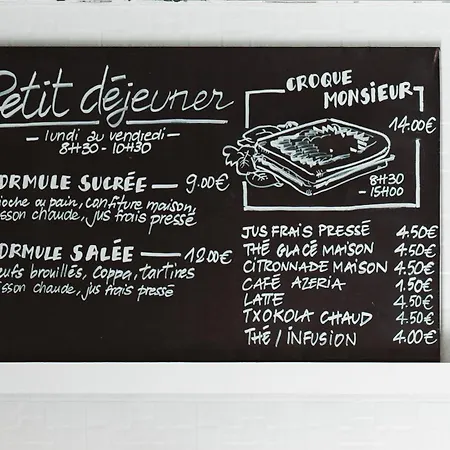 Petit déjeuner
— lundi au vendredi —
8H30 - 10H30
ORMULE SUCRÉE — 9.00€
ioche ou pain, confiture maison,
isson chaude, jus frais pressé
ORMULE SALÉE — 12.00€
eufs brouillés, coppa, tartines
isson chaude, jus frais pressé
CROQUE
MONSIEUR
14.00€
8H30
- 15H00
JUS FRAIS PRESSÉ 4.50€
THÉ GLACÉ MAISON 4.50€
CITRONNADE MAISON 4.50€
CAFÉ AZERIA 1.50€
LATTE 4.50€
TXOKOLA CHAUD 4.50€
THÉ / INFUSION 4.00€